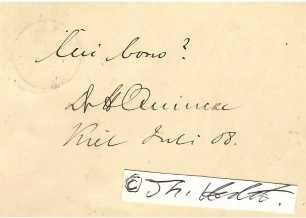 Cui bono?
Dr H Quincke
Kiel Juli 08.
© Th.